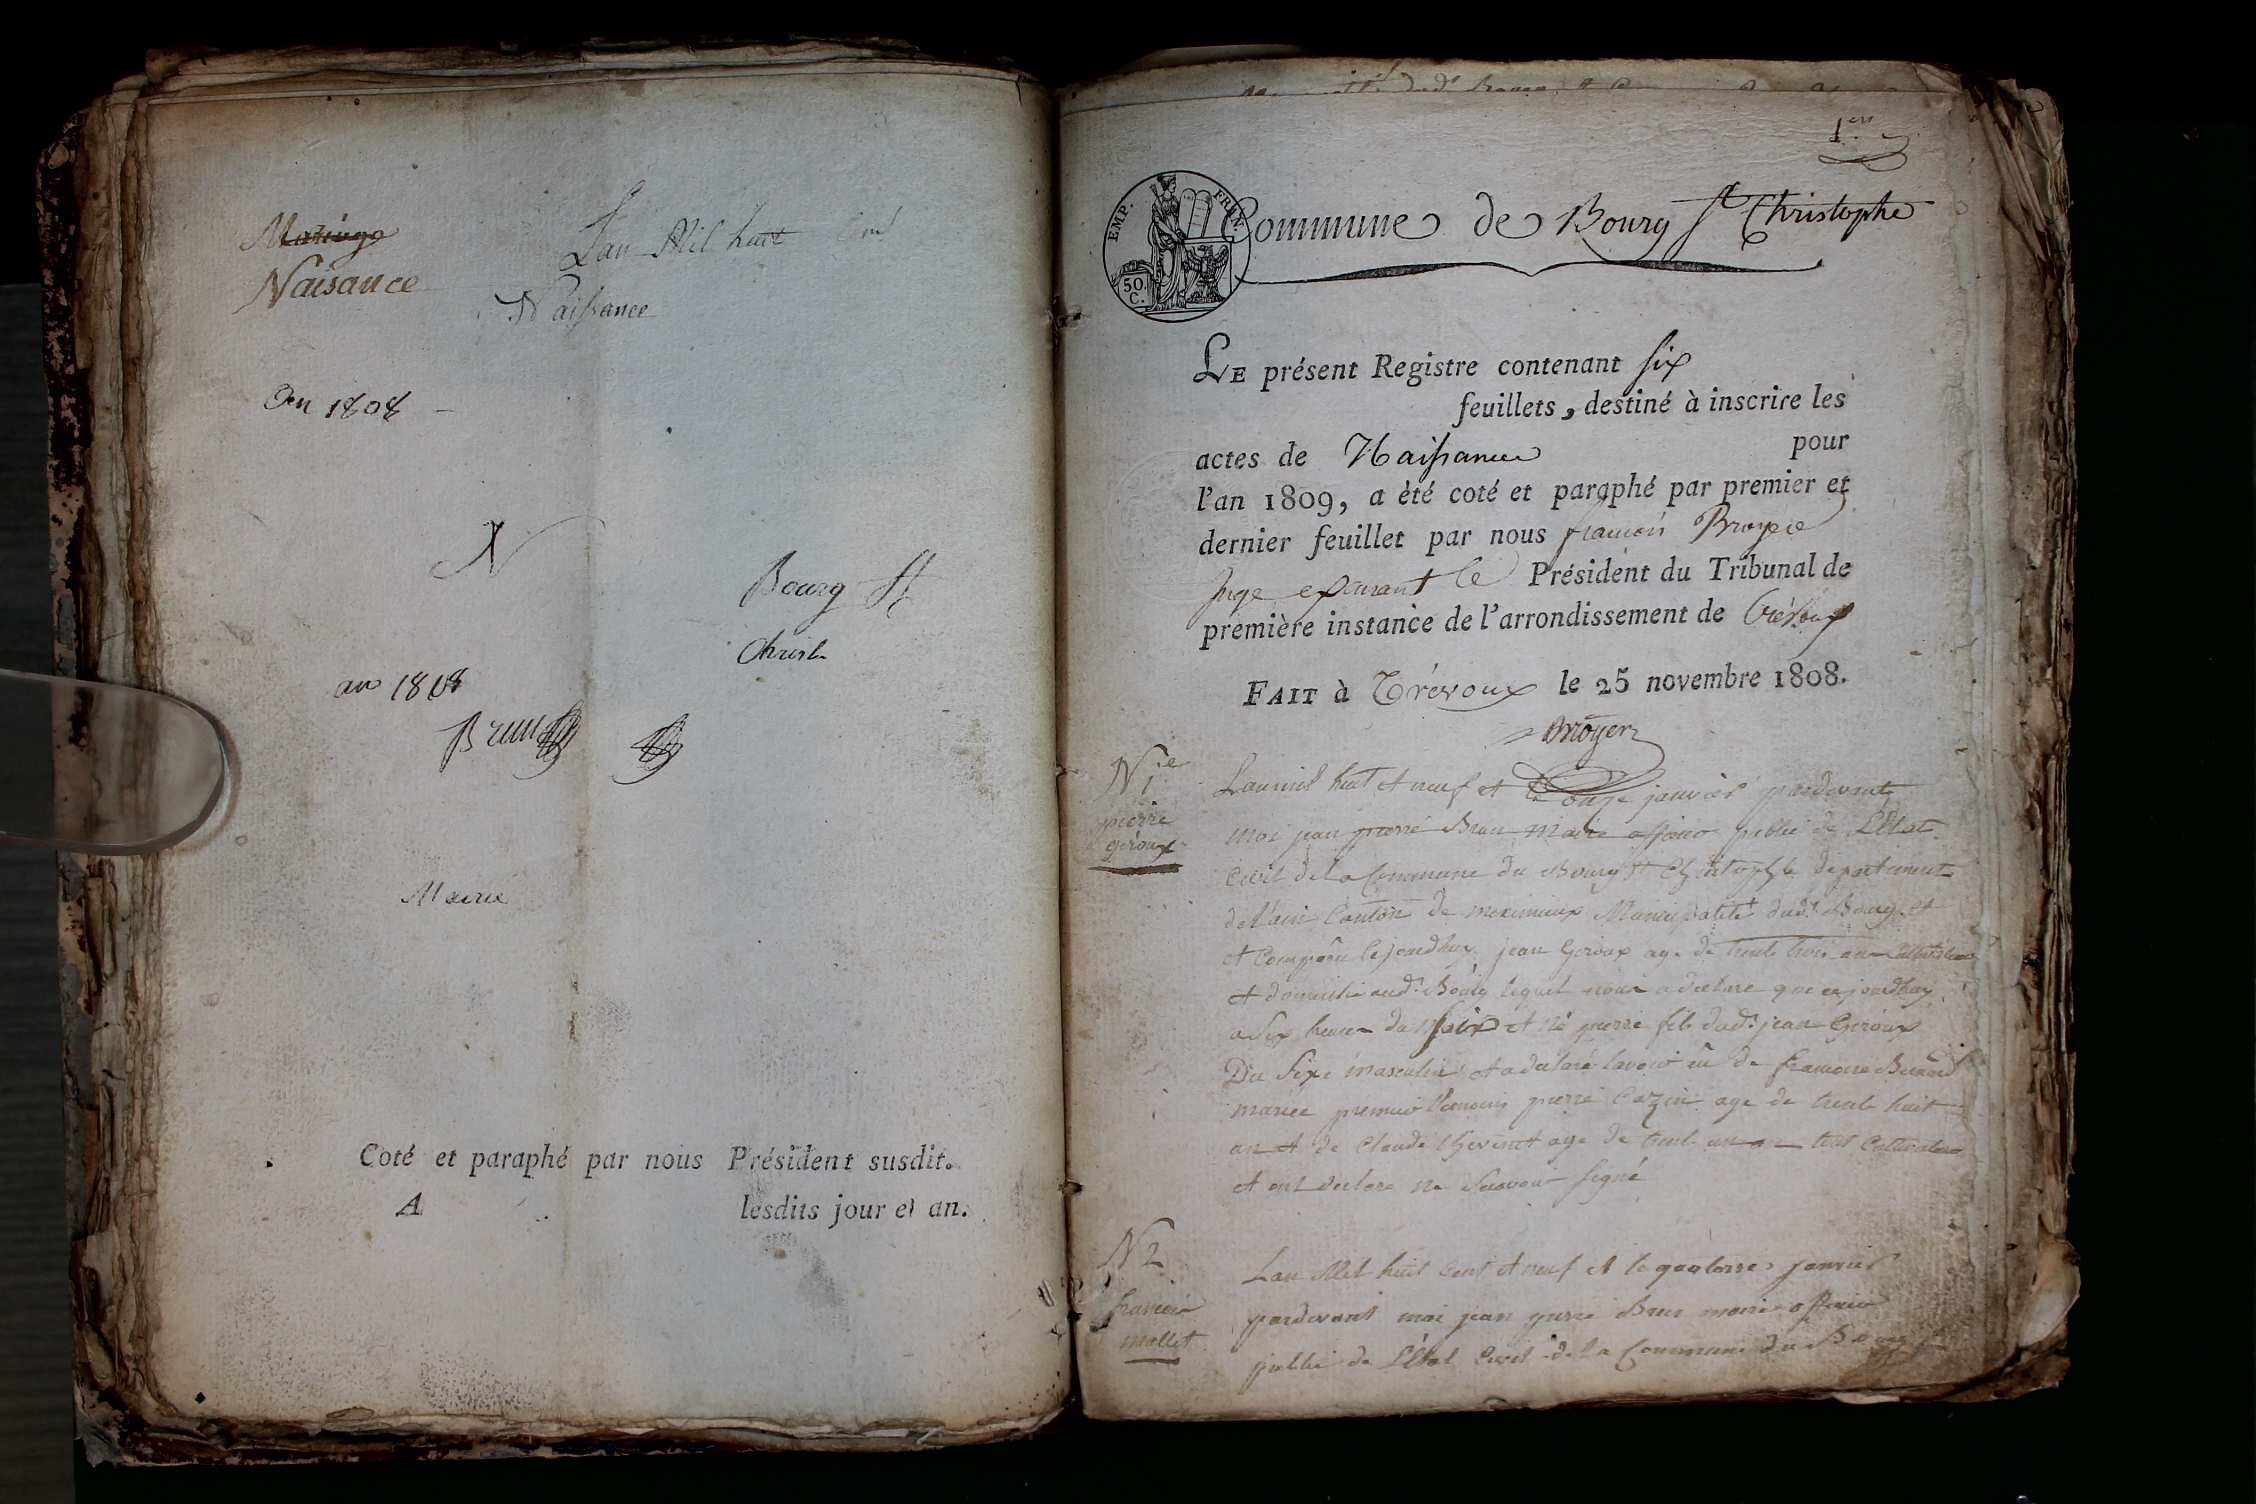 Mariage
Naisance
Lan Mil huit Cent
Naissance
En 1808
N
Bourg St
Christ
an 1808
Brun
Mairie
Coté et paraphé par nous Président susdit.
A lesdits jour et an.
1er
EMP. FRAN.
50.
C.
Commune de Bourg St Christophe
LE présent Registre contenant six
feuillets, destiné à inscrire les
actes de Naissance pour
l'an 1809, a été coté et paraphé par premier et
dernier feuillet par nous françois Broyer
Juge exerçant le Président du Tribunal de
première instance de l'arrondissement de Trévoux
FAIT à Trévoux le 25 novembre 1808.
Broyer
N 1
pierre
giroux
Lan mil huit et neuf et le onze janvier pardevant
moi jean pierre Brun maire officier public de L'État
Civil de la Commune du Bourg St Christophle departement
de l'ain Canton de meximieux Municipalité dud. Bourg et
et Comparu cejourdhuy jean Giroux age de trente trois an Cultivateur
et domicilié aud. Bourg lequel nous a declare que cejourdhuy
a Six heure du soir et né pierre fils dud. jean Giroux
Du Sixe masculin et a declaré lavoir û de francoise
mariée premier temoins pierre Cazin age de trente huit
an et de Claude thevenet age de trente un an tous Cultivateur
et ont declare ne Scavoir signé
N 2
francois
mollet
Lan Mil huit Cent et neuf et le quatorze janvier
pardevant moi jean pierre Brun maire officier
public de L'État Civil de la Commune du Bourg St